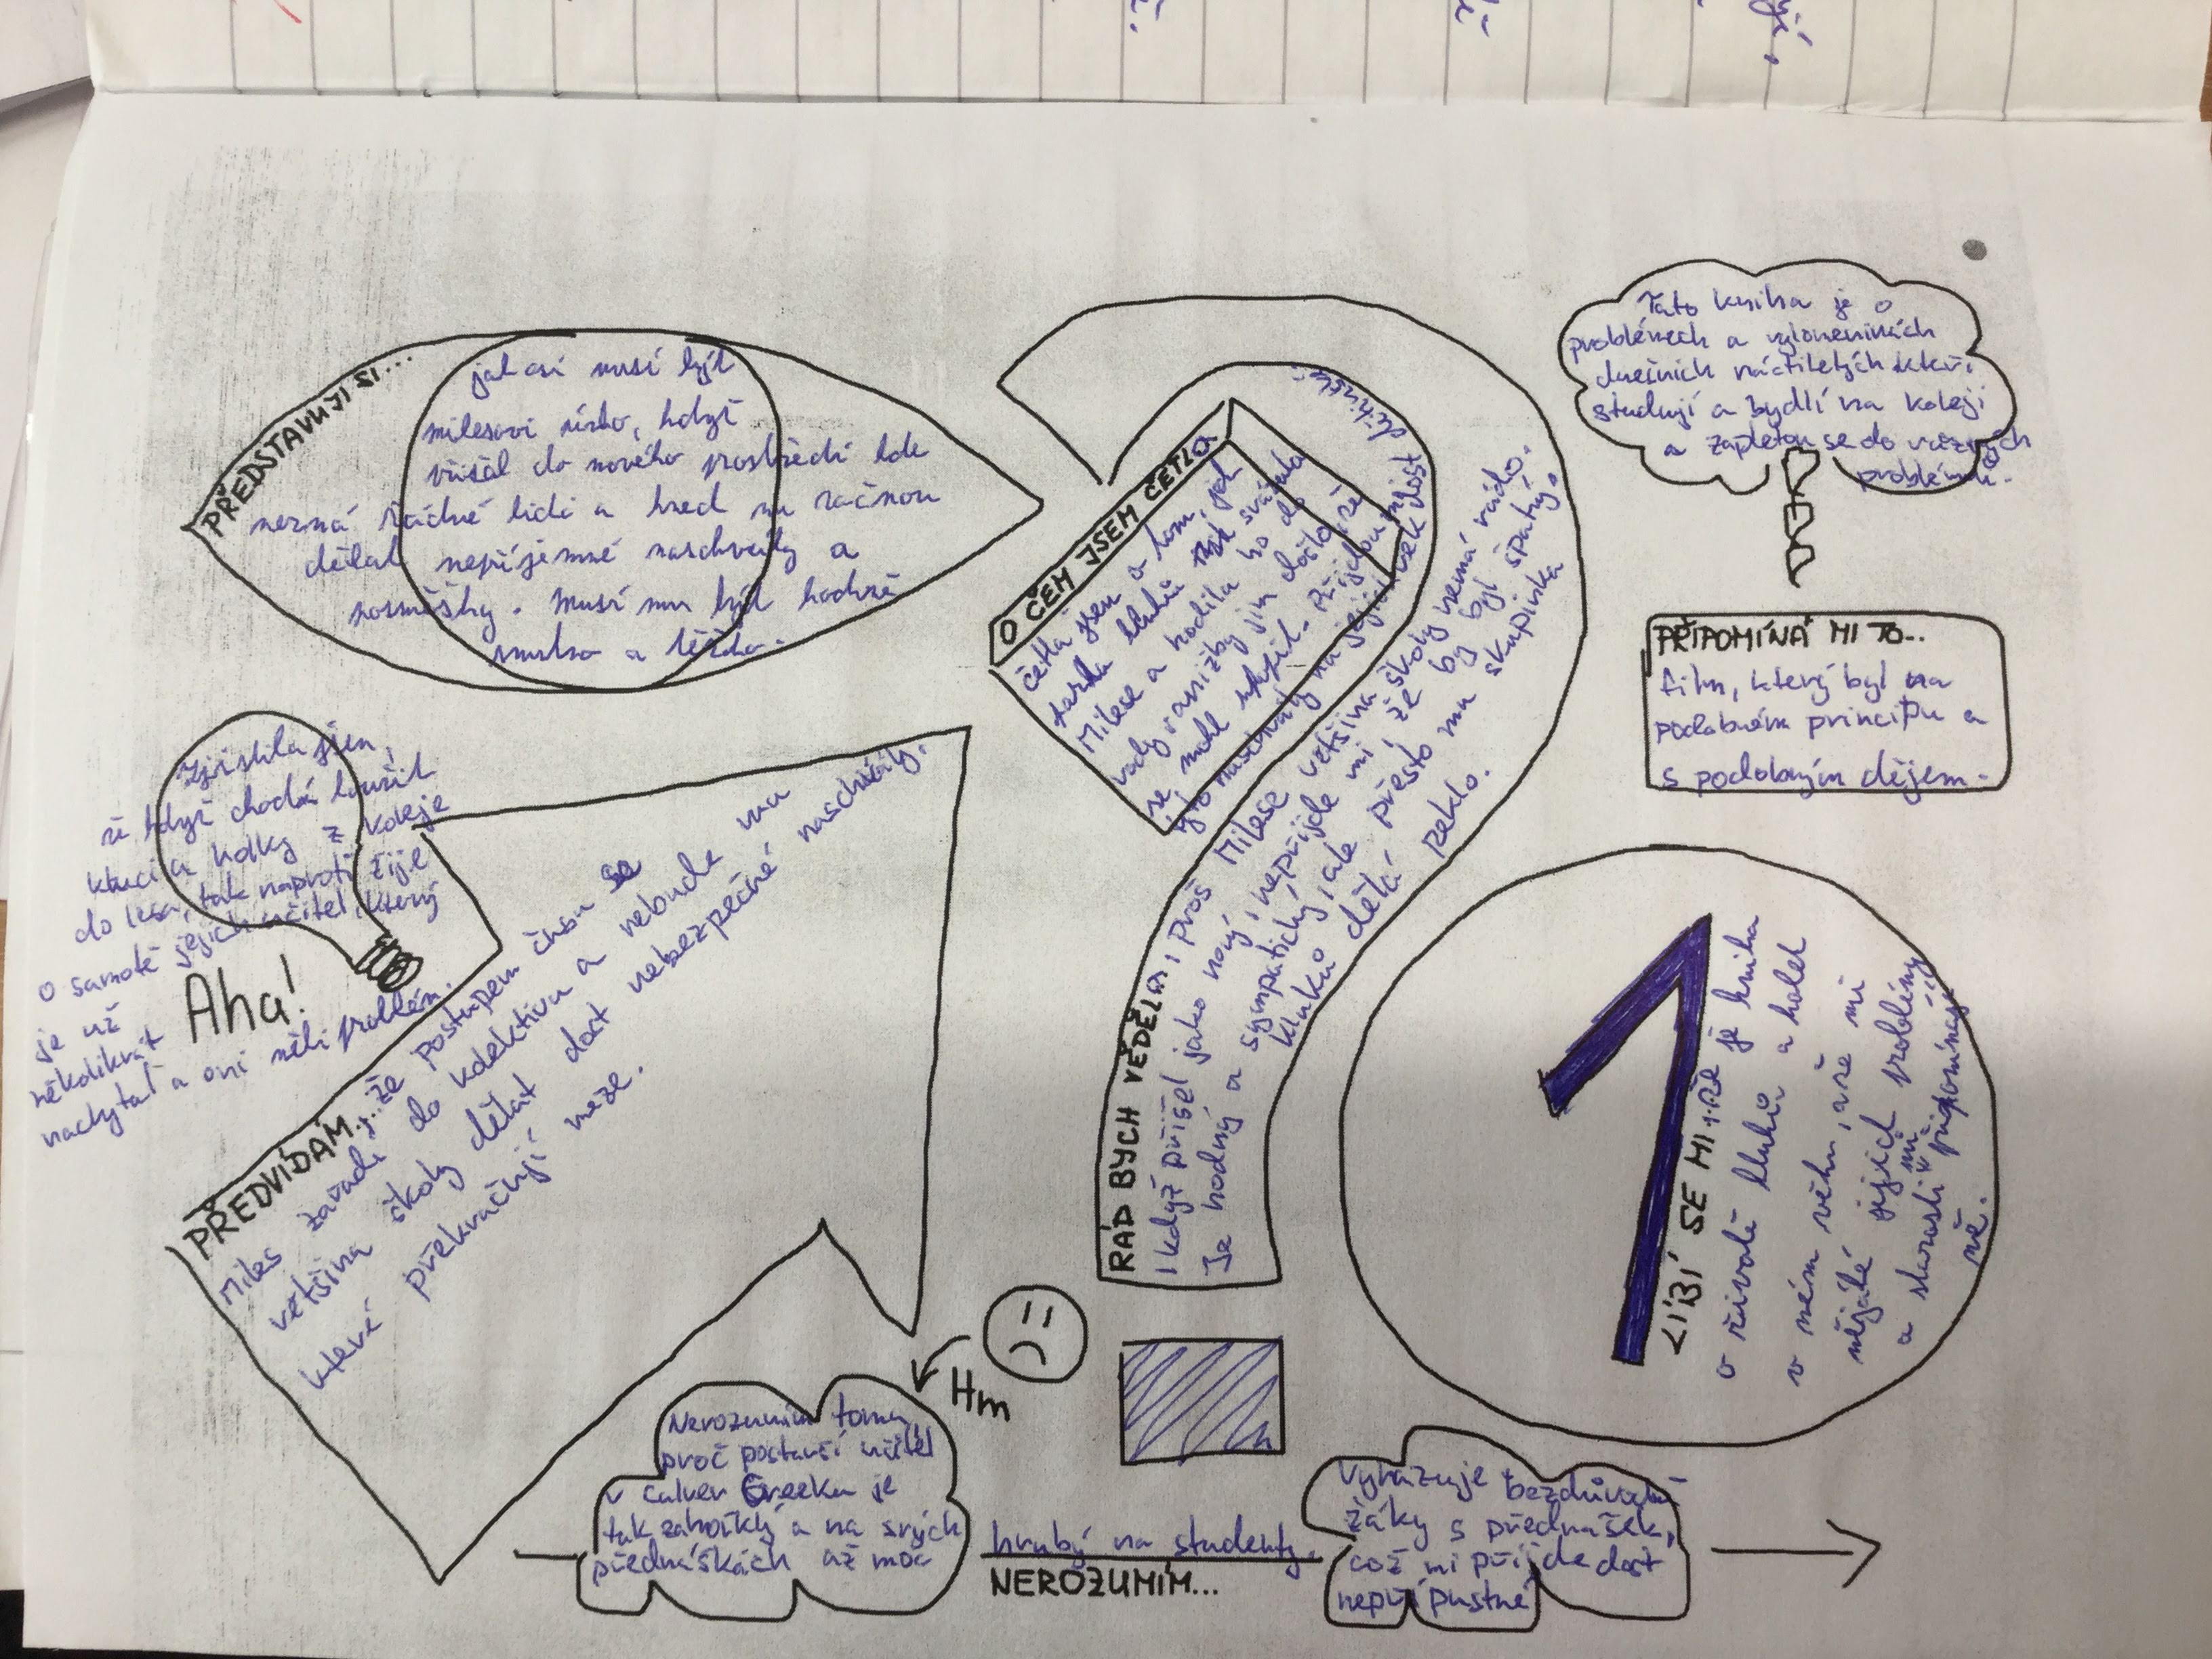 PŘEDSTAVUJI SI...
jak asi musí být
milesovi úzko, když
přišel do nového prostředí kde
nezná žádné lidi a hned mu začnou
dělat nepříjemné naschvály a
posměšky. Musí mu být hodně
smutno a těžko.
O ČEM JSEM ČETLA
četla jsem o tom, jak
parta kluků svázala
Milese a hodila ho do
vody, aniž by jim došlo, že
se mohl utopit. Přijdou mi
tyto naschvály na jejich věk dost
dětinské.
Tato kniha je o
problémech a vylomeninách
dnešních náctiletých kteří
studují a bydlí na koleji
a zapletou se do vážných
problémů.
PŘIPOMÍNÁ MI TO...
film, který byl na
podobném principu a
s podobným dějem.
Zjistila jsem,
že když chodí kouřit
kluci a holky z koleje
do lesa, tak naproti žije
o samotě jejich učitel, který
je už
několikrát
nachytal a oni měli problém.
Aha!
PŘEDVÍDÁM... že postupem času se
Miles zařadí do kolektivu a nebude mu
většina školy dělat dost nebezpečné naschvály,
které překračují meze.
RÁD BYCH VĚDĚLA, proč Milese většina školy nemá ráda.
I když přišel jako nový, nepřijde mi, že by byl špatný.
Je hodný a sympatický, ale přesto mu skupinka
kluků dělá peklo.
1
LÍBÍ SE MI, že je kniha
o životě kluků a holek
v mém věku, a že mi
nějaké jejich problémy
a starosti připomínají
mě.
Hm
Nerozumím tomu,
proč postarší učitel
v Culver Creeku je
tak zahořklý a na svých
přednáškách až moc
hrubý na studenty.
NEROZUMÍM...
Vyhazuje bezdůvodně
žáky s přednášek,
což mi přijde dost
nepřípustné